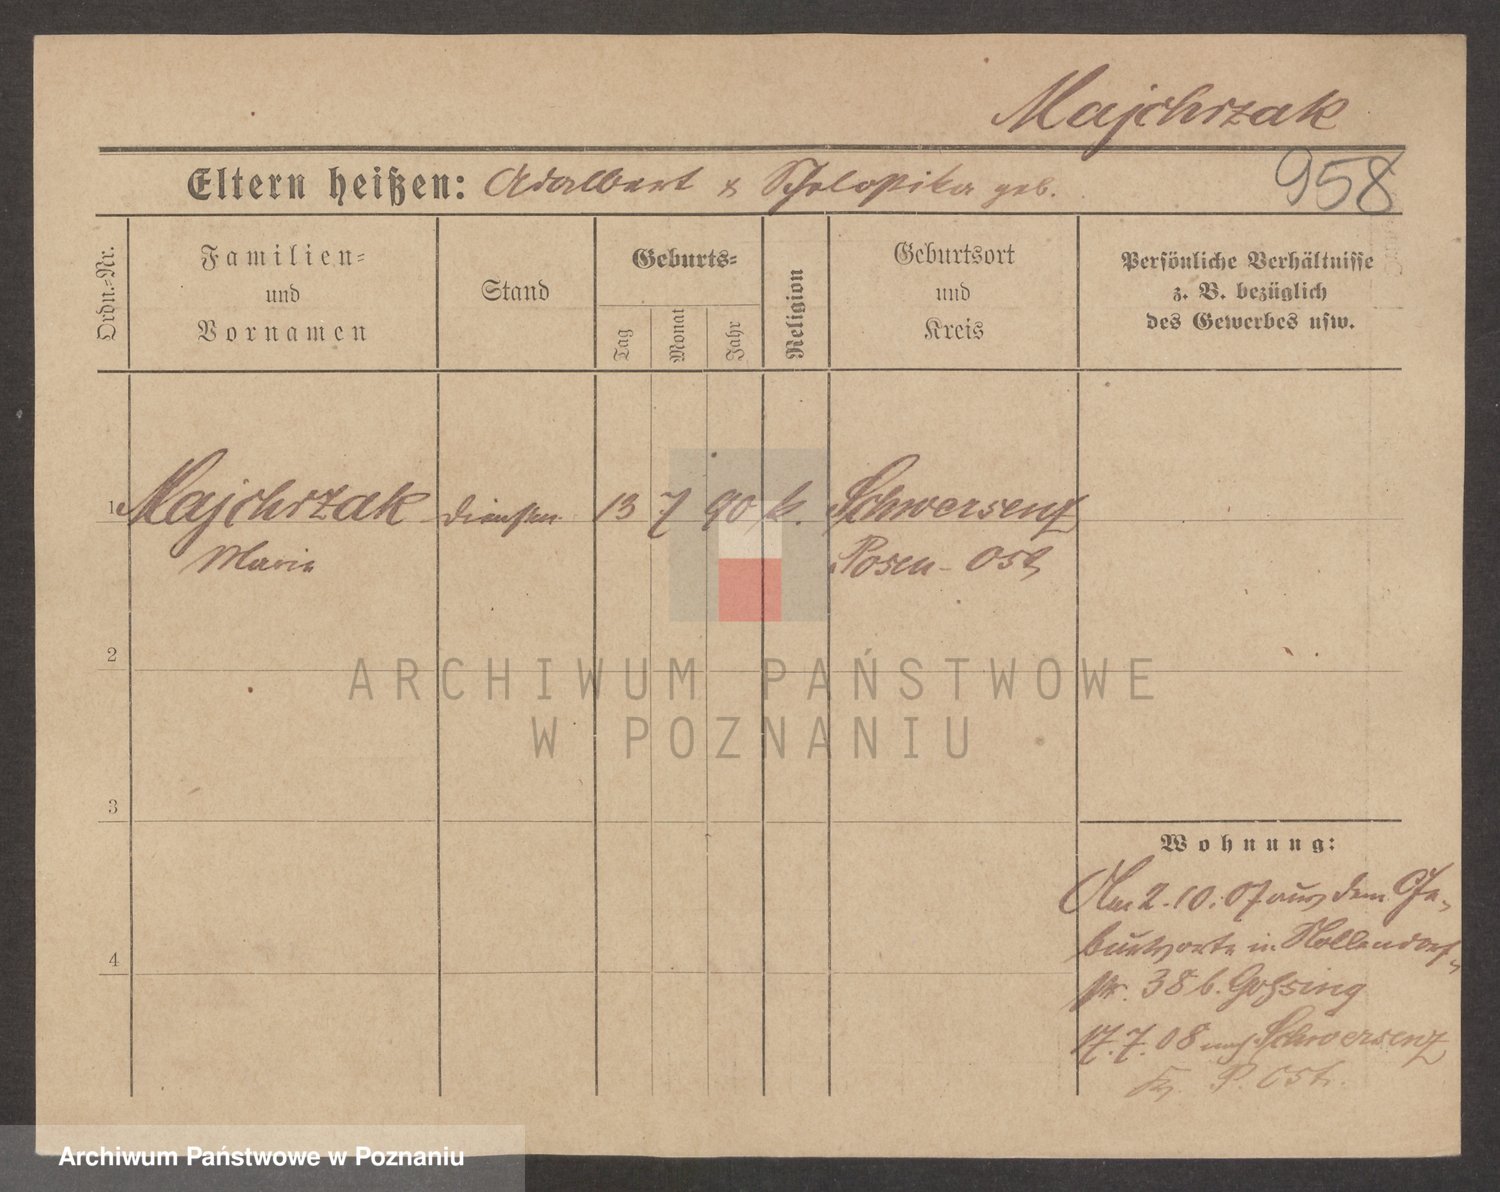 Majchrzak
958
Eltern heißen: Adalbert & geb.
Ordn.-Nr.
Familien-
und
Vornamen
Stand
Geburts-
Tag
Monat
Jahr
Religion
Geburtsort
und
Kreis
Persönliche Verhältnisse
z. B. bezüglich
des Gewerbes usw.
1 Majchrzak 13 7 90 k. Schwersenz
Maria Posen-Ost
2
3
4
Wohnung:
Am 2.10.07 aus dem Ge-
burtsorte in Nollendorf-
str. 38 b.
17.7.08 nach Schwersenz
P. Ost.
ARCHIWUM PAŃSTWOWE
W POZNANIU
Archiwum Państwowe w Poznaniu